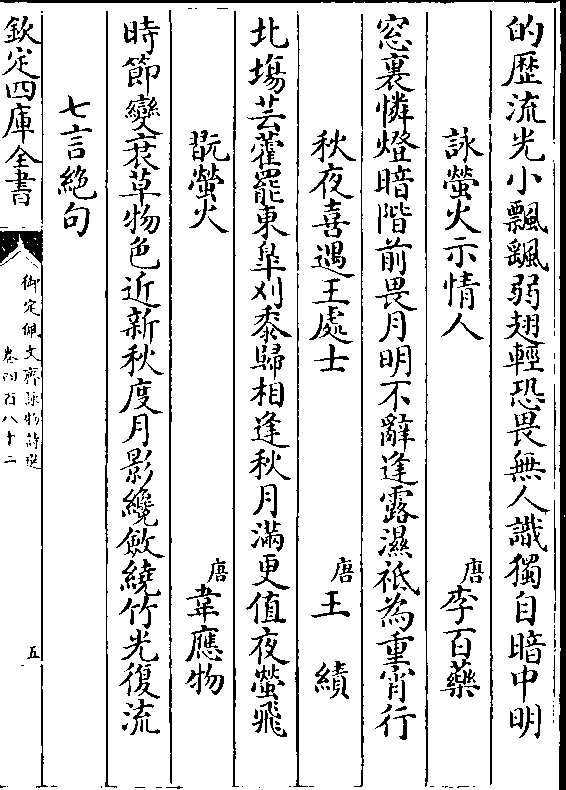 的歴流光小飄颻弱翅輕恐畏無人識獨自暗中明
詠螢火示情人 唐 李百藥
窓裏憐燈暗階前畏月明不辭逢露濕祗為重宵行
秋夜喜遇王處士 唐 王績
北塲芸藿罷東臯刈黍歸相逢秋月滿更值夜螢飛
翫螢火 唐 韋應物
時節變衰草物色近新秋度月影纔斂繞竹光復流
七言絶句
欽定四庫全書
御定佩文齋詠物詩選
卷四百八十二
五